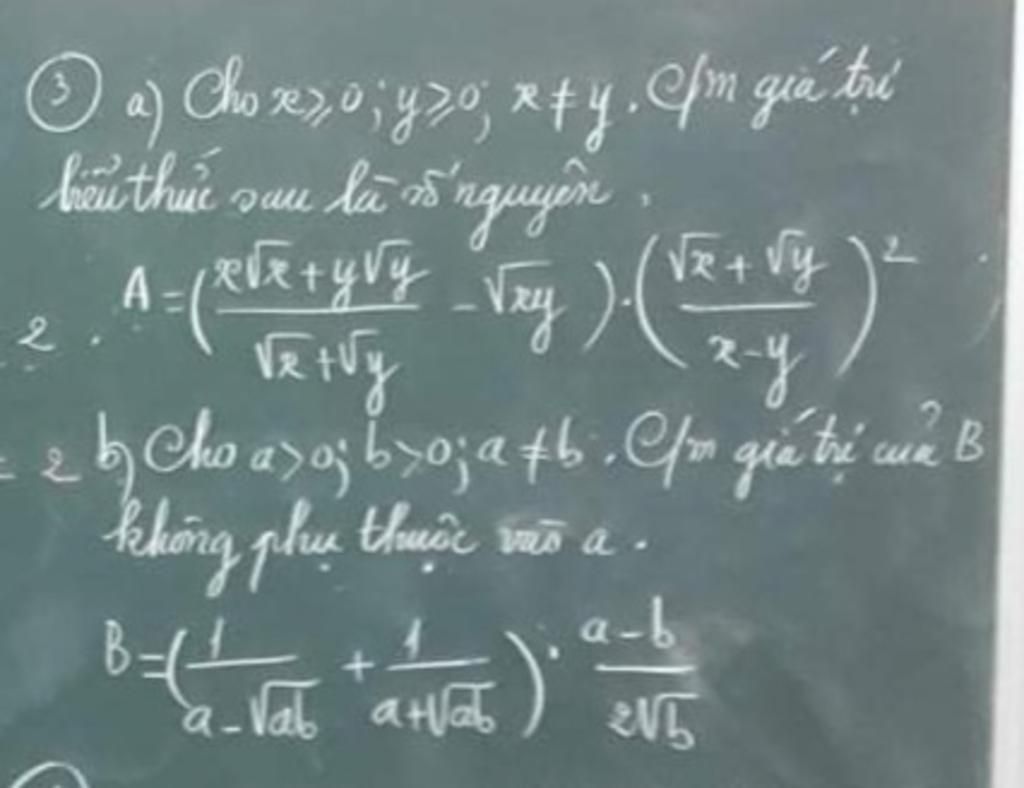 ③ a) Cho x ⩾ 0; y ⩾ 0; x ≠ y. C/m giá trị
biểu thức sau là số nguyên.
A = ( (x√x + y√y)/(√x + √y) - √xy ) . ( (√x + √y)/(x - y) )²
2 .
2 b) Cho a > 0; b > 0; a ≠ b. C/m giá trị của B
không phụ thuộc vào a.
B = ( 1/(a - √ab) + 1/(a + √ab) ) . (a - b)/(2√b)